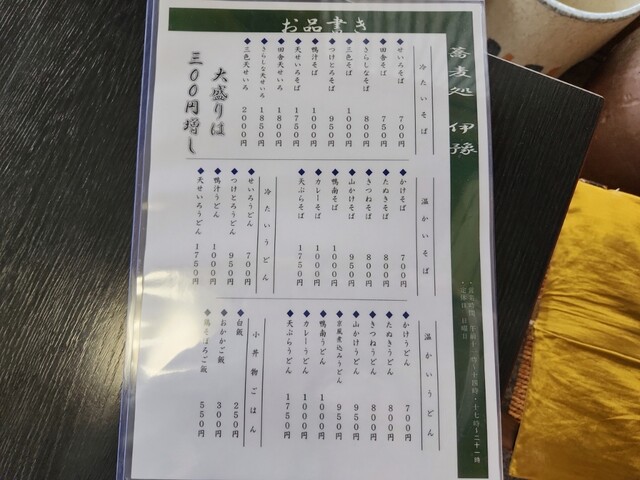 お品書き
蕎麦処 伊豫
冷たいそば
せいろそば 700円
田舎そば 750円
さらしなそば 800円
三色そば 1000円
つけとろそば 950円
鴨汁そば 1000円
天せいろそば 1750円
田舎天せいろ 1800円
さらしな天せいろ 1850円
三色天せいろ 2000円
大盛りは
三〇〇円増し
温かいそば
かけそば 700円
たぬきそば 800円
きつねそば 800円
山かけそば 950円
鴨南そば 1000円
カレーそば 1000円
天ぷらそば 1750円
冷たいうどん
せいろうどん 700円
つけとろうどん 950円
鴨汁うどん 1000円
天せいろうどん 1750円
温かいうどん
かけうどん 700円
たぬきうどん 800円
きつねうどん 800円
山かけうどん 950円
京風煮込みうどん 950円
鴨南うどん 1000円
カレーうどん 1000円
天ぷらうどん 1750円
小丼物ごはん
白飯 250円
おかかご飯 300円
鶏そぼろご飯 550円
・定休日 日曜日